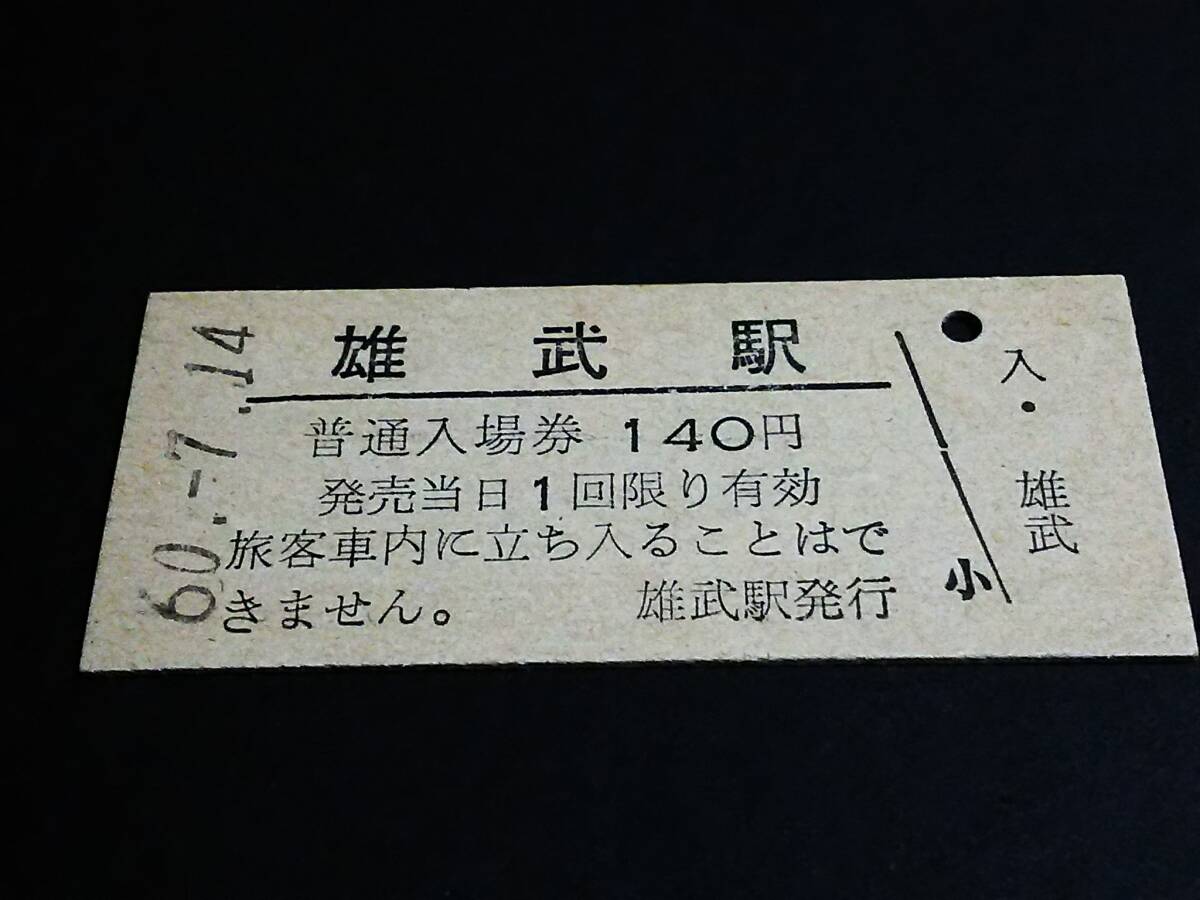 60.-7.14
雄武駅
普通入場券 140円
発売当日1回限り有効
旅客車内に立ち入ることはで
きません。 雄武駅発行
小
入・雄武